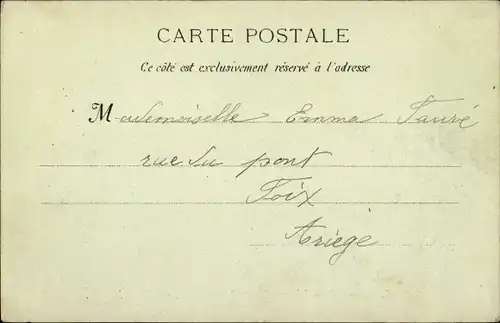 CARTE POSTALE
Ce côté est exclusivement réservé à l'adresse
Mademoiselle Emma Fauré
rue du pont
Foix
Ariege